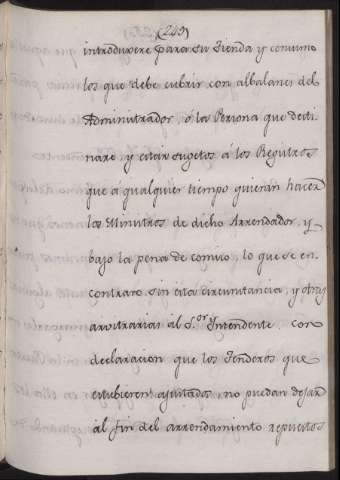 (249)
introduxere para su Tienda y consumo
los que debe cubrir con albalanes del
Administrador, ó la Persona que desti-
nare y estar sugetos á los Registros
que a qualquier tiempo quieran hacer
los Ministros de dicho Arrendador, y
bajo la pena de comiso, lo que se en-
contrare sin esta circunstancia, y otras
arvitrarias al S.or Yntendente, con
declaracion que los Tenderos que
estubieren ajustados, no puedan dejar
al fin del arrendamiento repuestos